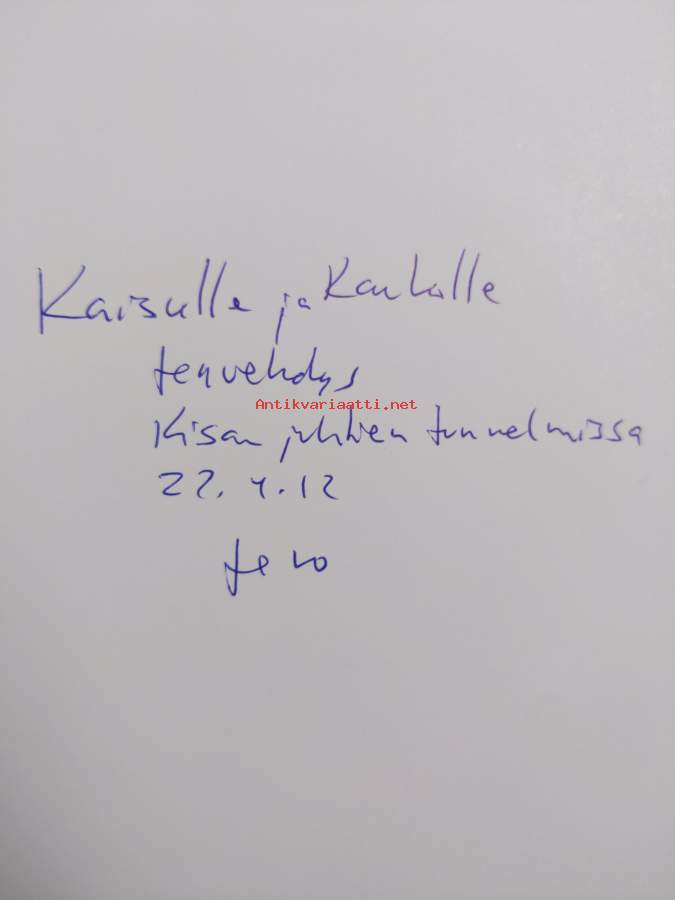 Kaisulle ja Kaukolle
tervehdys
Antikvariaatti.net
Kisan juhlien tunnelmissa
22.4.12
Tero